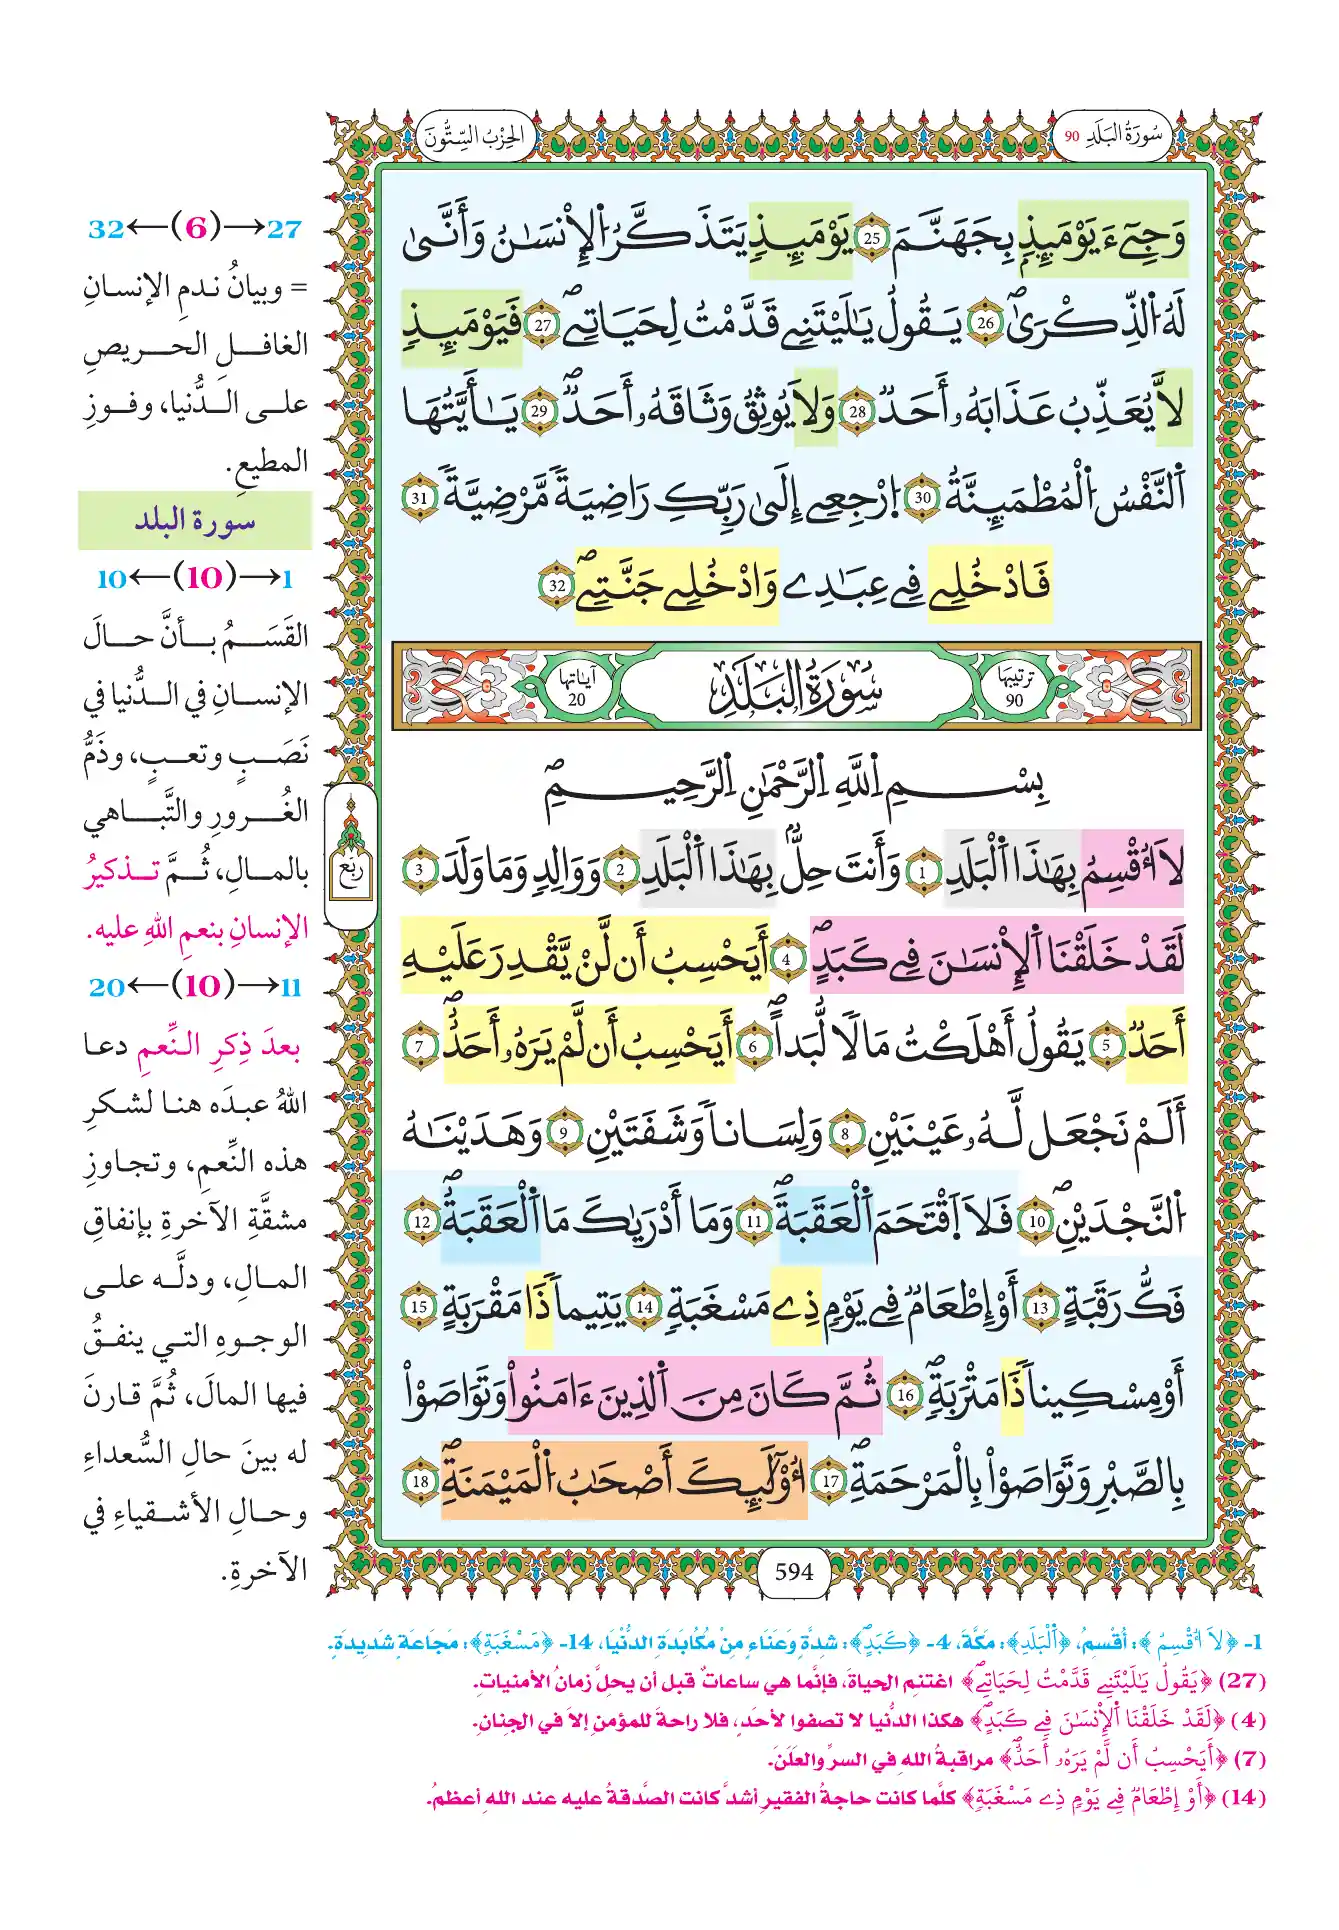 سُورَةُ البَلَدِ 90
الحِزْبُ السِّتُّونَ
وَجِيٓءَ يَوْمَئِذِۢ بِجَهَنَّمَ 25 يَوْمَئِذٖ يَتَذَكَّرُ اُلْإِنسَٰنُ وَأَنّ۪ىٰ
لَهُ اُلذِّكْر۪ىٰ 26 يَقُولُ يَٰلَيْتَنِے قَدَّمْتُ لِحَيَاتِے 27 فَيَوْمَئِذٖ
لَّا يُعَذِّبُ عَذَابَهُۥ أَحَدٞ 28 وَلَا يُوثِقُ وَثَاقَهُۥ أَحَدٞ 29 يَٰأَيَّتُهَا
اَلنَّفْسُ اُلْمُطْمَئِنَّةُ 30 اُ۪رْجِعِے إِلَىٰ رَبِّكِ رَاضِيَةٗ مَّرْضِيَّةٗ 31
فَادْخُلِے فِے عِبَٰدِے وَادْخُلِے جَنَّتِے 32
ترتيبها 90
سُورَةُ البَلَدِ
آياتها 20
بِسْمِ اِللَّهِ اِلرَّحْمَٰنِ اِلرَّحِيمِ
لَا أُقْسِمُ بِهَٰذَا اَلْبَلَدِ 1 وَأَنتَ حِلُّۢ بِهَٰذَا اَلْبَلَدِ 2 وَوَالِدٖ وَمَا وَلَدَ 3
لَقَدْ خَلَقْنَا اَلْإِنسَٰنَ فِے كَبَدٍ 4 أَيَحْسِبُ أَن لَّنْ يَّقْدِرَ عَلَيْهِ
أَحَدٞ 5 يَقُولُ أَهْلَكْتُ مَالاٗ لُّبَداً 6 أَيَحْسِبُ أَن لَّمْ يَرَهُۥ أَحَدٌ 7
أَلَمْ نَجْعَل لَّهُۥ عَيْنَيْنِ 8 وَلِسَاناٗ وَشَفَتَيْنِ 9 وَهَدَيْنَٰهُ
اُلنَّجْدَيْنِ 10 فَلَا اَ۪قْتَحَمَ اَلْعَقَبَةَ 11 وَمَا أَدْر۪يٰكَ مَا اَلْعَقَبَةُ 12
فَكُّ رَقَبَةٍ 13 أَوْ إِطْعَٰمٞ فِے يَوْمٖ ذِے مَسْغَبَةٖ 14 يَتِيماٗ ذَا مَقْرَبَةٍ 15
أَوْ مِسْكِيناٗ ذَا مَتْرَبَةٖ 16 ثُمَّ كَانَ مِنَ اَلذِينَ ءَامَنُواْ وَتَوَاصَوْاْ
بِالصَّبْرِ وَتَوَاصَوْاْ بِالْمَرْحَمَةِ 17 أُوْلَٰئِكَ أَصْحَٰبُ اُلْمَيْمَنَةِ 18
ربع
594
27→(6)←32
= وبيانُ ندمِ الإنسانِ
الغافلِ الحريصِ
على الدُّنيا، وفوزِ
المطيعِ.
سورة البلد
1→(10)←10
القَسَمُ بأنَّ حالَ
الإنسانِ في الدُّنيا في
نَصَبٍ وتعبٍ، وذَمُّ
الغُرورِ والتَّباهي
بالمالِ، ثُمَّ تذكيرُ
الإنسانِ بنعمِ اللهِ عليه.
11→(10)←20
بعدَ ذِكرِ النِّعمِ دعا
اللهُ عبدَه هنا لشكرِ
هذه النِّعمِ، وتجاوزِ
مشقَّةِ الآخرةِ بإنفاقِ
المالِ، ودلَّه على
الوجوهِ التي ينفقُ
فيها المالَ، ثُمَّ قارنَ
له بينَ حالِ السُّعداءِ
وحالِ الأشقياءِ في
الآخرةِ.
1- ﴿لَا أُقْسِمُ﴾: أُقْسِمُ، ﴿اَلْبَلَدِ﴾: مَكَّةَ، 4- ﴿كَبَدٍ﴾: شِدَّةٍ وَعَنَاءٍ مِنْ مُكَابَدَةِ الدُّنْيَا، 14- ﴿مَسْغَبَةٖ﴾: مَجَاعَةٍ شَدِيدَةٍ.
(27) ﴿يَقُولُ يَٰلَيْتَنِے قَدَّمْتُ لِحَيَاتِے﴾ اغتنمِ الحياةَ، فإنَّما هي ساعاتٌ قبل أن يحلَّ زمانُ الأمنياتِ.
(4) ﴿لَقَدْ خَلَقْنَا اَلْإِنسَٰنَ فِے كَبَدٍ﴾ هكذا الدُّنيا لا تصفوا لأحَدٍ، فلا راحةَ للمؤمنِ إلا في الجِنانِ.
(7) ﴿أَيَحْسِبُ أَن لَّمْ يَرَهُۥ أَحَدٌ﴾ مراقبةُ اللهِ في السرِّ والعَلَنِ.
(14) ﴿أَوْ إِطْعَٰمٞ فِے يَوْمٖ ذِے مَسْغَبَةٖ﴾ كلَّما كانت حاجةُ الفقيرِ أشدَّ كانت الصَّدقةُ عليه عند اللهِ أعظمَ.